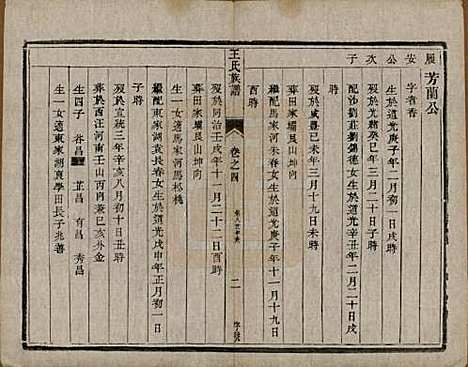 芳蘭公
履安公次子
字者香
生於道光庚子年二月初一日戌時
歿於光緒癸巳年三月二十日子時
配沙劉莊劉錫德女生於道光庚子年二月二十日
未時
歿於咸豐己未年三月十九日未時
葬田家壩艮山坤向
繼配馬家河朱春女生於道光庚子年十一月十九日
酉時
王氏族譜
卷之四
二
歿於同治壬戌年十一月二十二日酉時
葬田家壩艮山坤向
生一女適馬家河馬彬橋
繼配東家湖袁長春女生於道光戊申年正月初一日
子時
歿於宣統三年辛亥八月初十日丑時
葬於西汪河南壬山丙向兼巳亥外金
生四子 谷昌 芷昌 有昌 秀昌
生一女適東家湖袁學田長子兆善